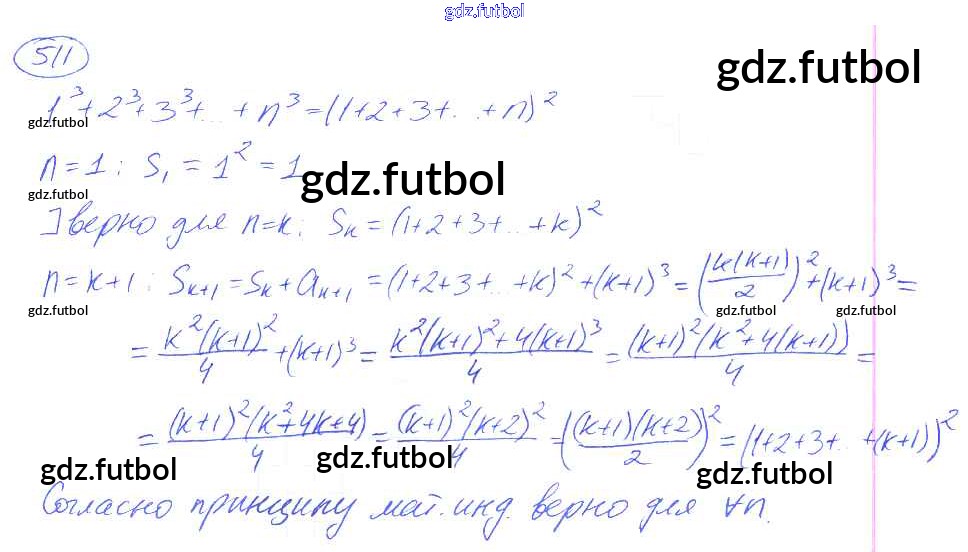 gdz.futbol
511
gdz.futbol
1³+2³+3³+...+n³=(1+2+3+...+n)²
gdz.futbol
n=1: S₁=1²=1
gdz.futbol
gdz.futbol
] верно для n=k: Sₖ=(1+2+3+...+k)²
n=k+1: Sₖ₊₁=Sₖ+aₖ₊₁=(1+2+3+...+k)²+(k+1)³=(k(k+1)/2)²+(k+1)³=
gdz.futbol gdz.futbol gdz.futbol
=k²(k+1)²/4+(k+1)³=(k²(k+1)²+4(k+1)³)/4=(k+1)²(k²+4(k+1))/4=
=(k+1)²(k²+4k+4)/4=(k+1)²(k+2)²/4=((k+1)(k+2)/2)²=(1+2+3+...+(k+1))²
gdz.futbol gdz.futbol gdz.futbol
Согласно принципу мат. инд. верно для ∀n.